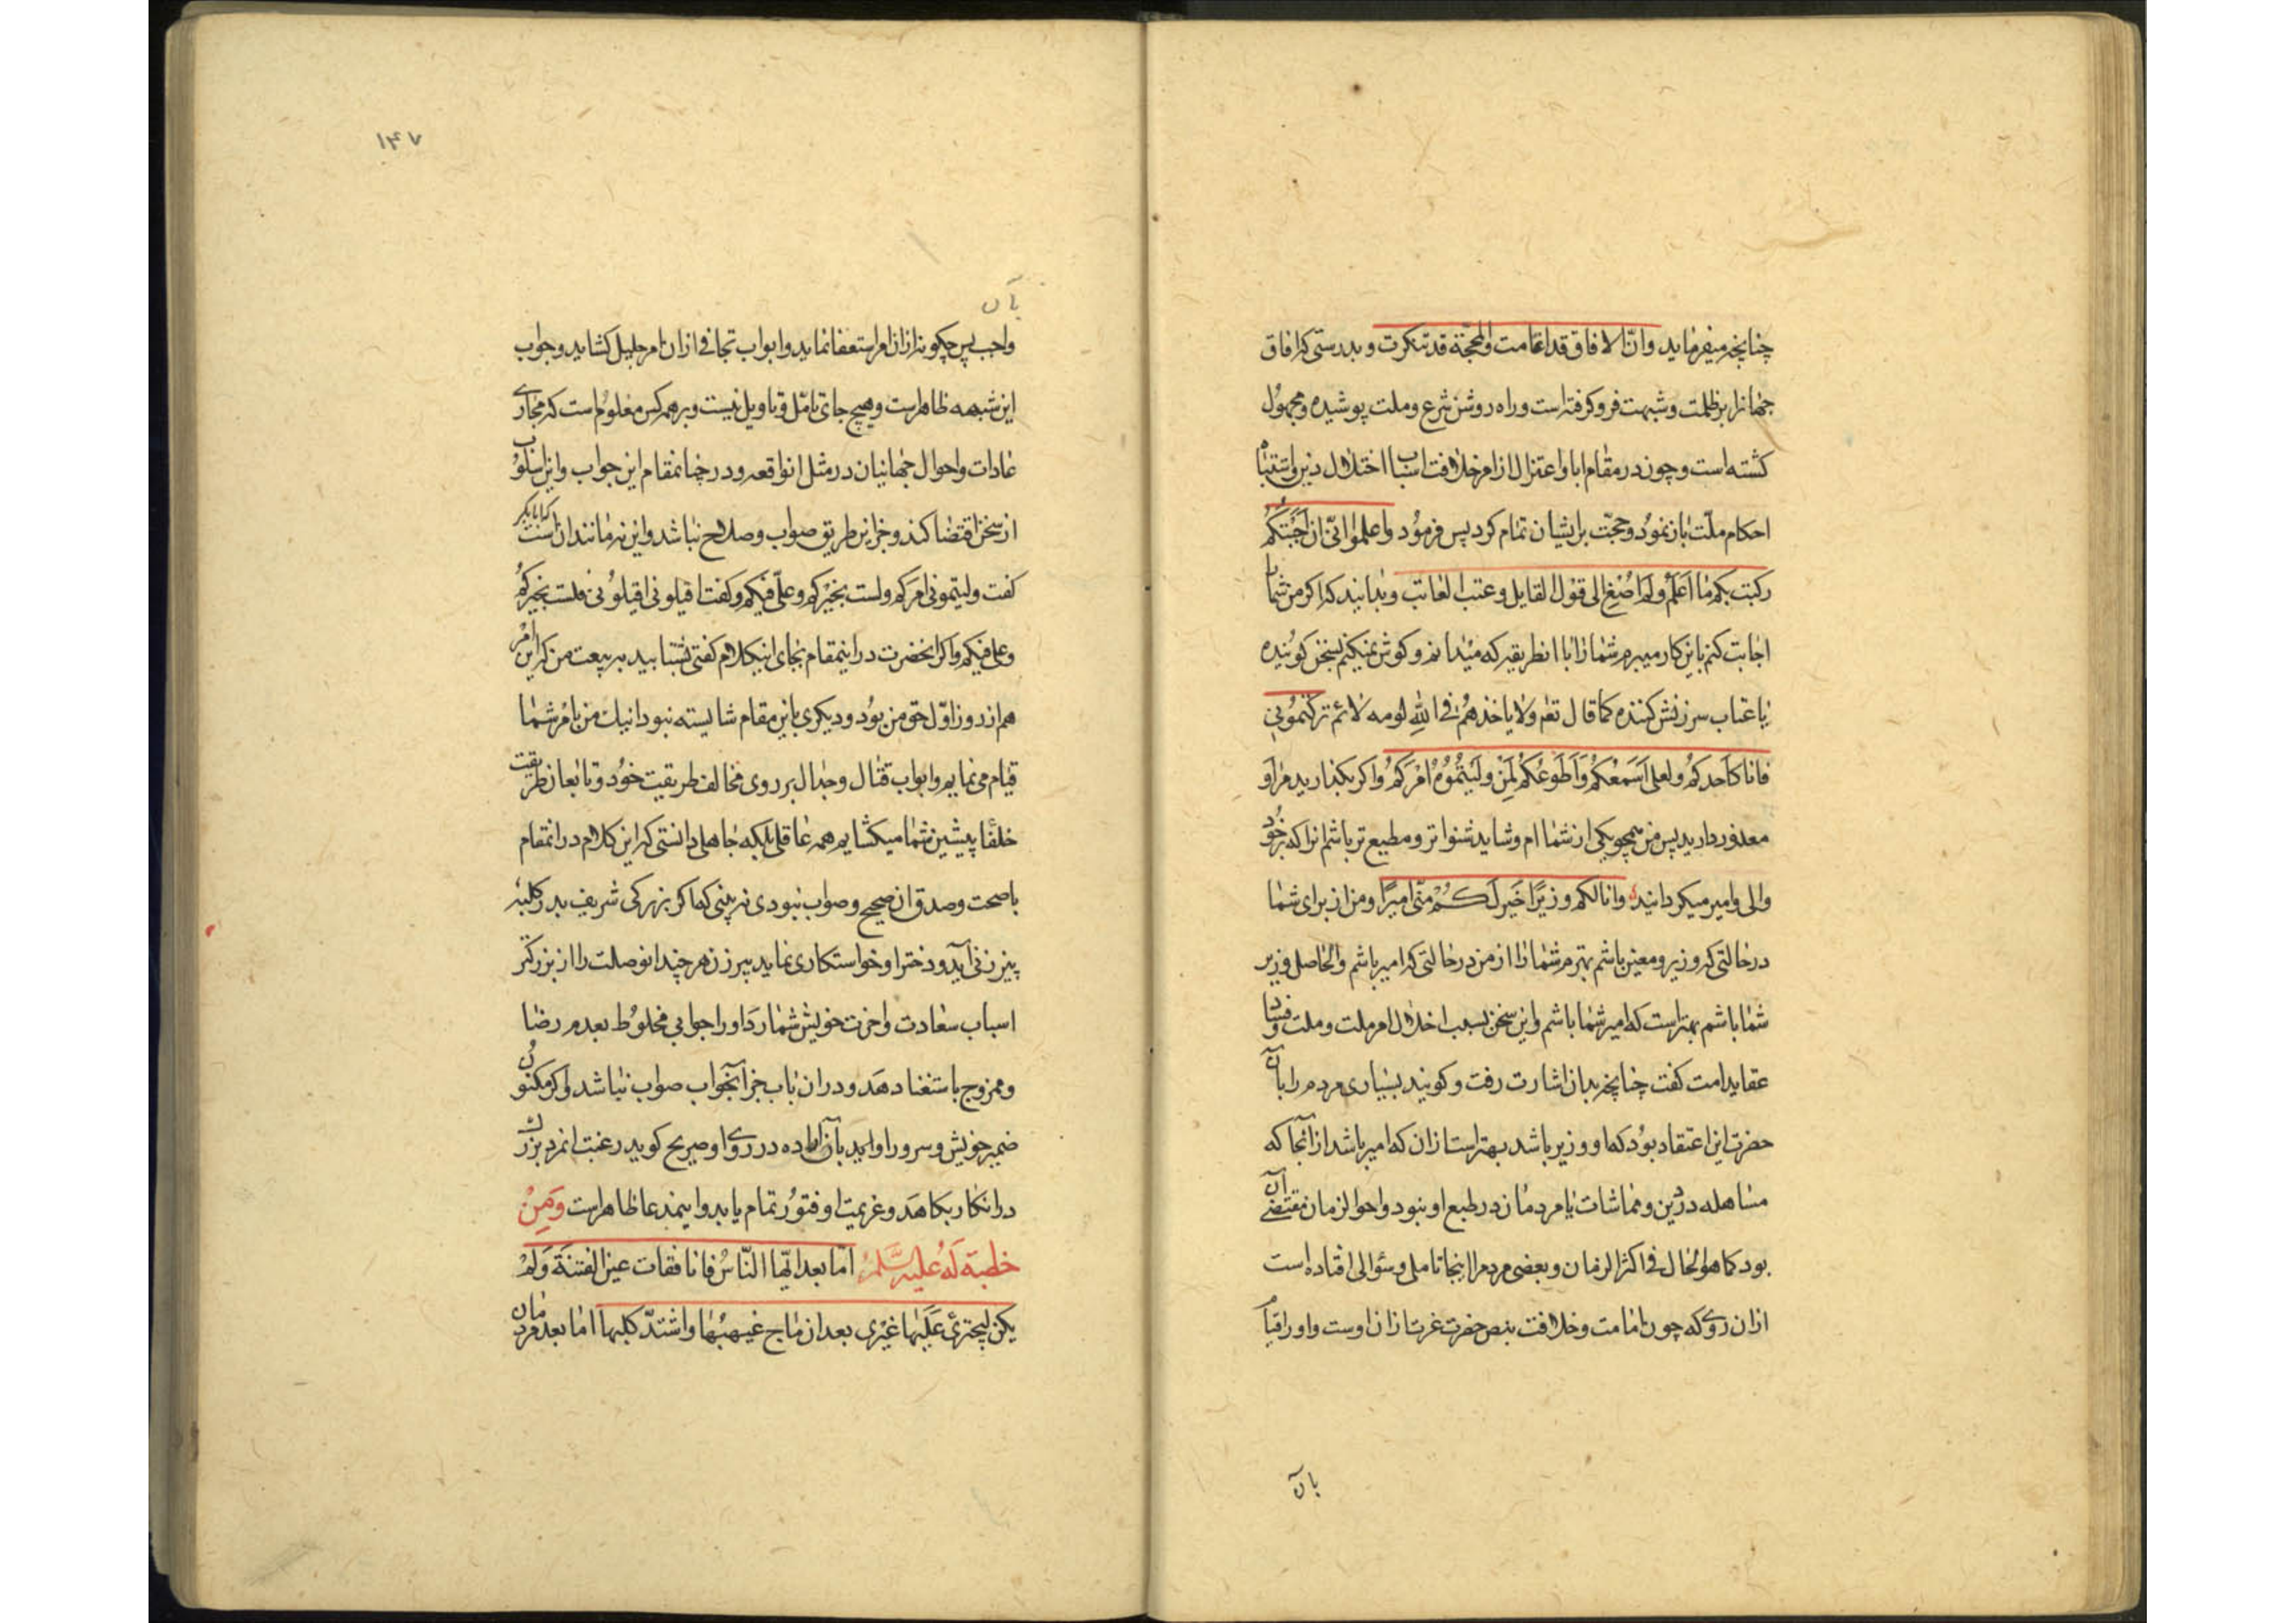 چنانچه میفرماید وانّ الافاق قد اغامت والمحجّة قد تنکرت و بدرستی که افاق
جهانرا ابر ظلمت و شبهت فرو کرفته است و راه روشن شرع و ملت پوشیده و مجهوُل
کشته است و چون در مقام ابا و اعتزال از امر خلافت اسباب اختلال دین و اشتباه
احکام ملّت باز نموُد و حجّت بر ایشان تمام کرد پس فرموُد واعلموا انّی ان اَجَبتکُم
رکبت بکم ما اَعلَمُ ولَم اُصْغِ الی قوْل القایل وعتب العاتب و بدانید که اکر من شما را
اجابت کنم باین کار میبرم شما را با انطریقه که میدانم و کوش نمیکنم بسخن کوینده
یا عتاب سرزنش کننده کما قال تعه ولا یاخذهُم فی اللّه لومه لائم ترکتموُنی
فانا کاَحدکمُ ولعلی اَسَمعُکُم وَاَطوَعُکُم لِمَن ولَیتُموُهُ اَمْرَکُمُ و اکر بکذارید مرا و
معذور دارید پس من همچو یکی از شما ام و شاید شنواتر و مطیع تر باشم انرا که بر خود
والی و امیر میکردانید وانا لکم وزیرًا خَیرلَکُمْ منّی امیرًا و من از برای شما
در حالتی که وزیر و معین باشم بهترم شما را از من در حالتی که امیر باشم والحاصل وزیر
شما باشم بهتر است که امیر شما باشم و این سخن بسبب اختلال امر ملت و ملت و فساد
عقاید امت کفت چنانچه بدان اشارت رفت و کویند بسیاری مردم را بان
حضرت این اعتقاد بوُد که او وزیر باشد بهتر است ازان که امیر باشد از انجا که
مساهله در دین و مماشات با مردمان در طبع او نبود و احوال زمان مقتضی آن
بود کما هو الحال فی اکثر الزمان و بعضی مردم را اینجا تاملی و سؤالی افتاده است
ازان روی که چون امامت و خلافت بنص حضرت عزت ازان اوست و او را قیام
بان
۱۴۷
بآن
واجب پس چکونه ازان امر استعفا نماید و ابواب تجافی ازان امر جلیل کشاید و جواب
این شبهه ظاهر است و هیچ جای تامّل و تاویل نیست و بر همه کس معلوُم است که مجاری
عادات و احوال جهانیان در مثل انواقعه و در چنانمقام این جواب و این اسلوُب
از سخن اقتضا کند و جز این طریق صواب و صلاح نباشد و این نه مانند انست که ابابکر
کفت ولیتمونی امرکم ولست بخیرکم وعلیّ فیکم و کفت اقیلونی اقیلوُنی فلست بخیرکُم
وعلی فیکم و اکر انحضرت در اینمقام بجای اینکلام کفتی بشتابید به بیعت من که این امر
هم از روز اوّل حق من بوُد و دیکری باین مقام شایسته نبود اینک من بامر شما
قیام می نمایم و ابواب قتال و جدال بر روی مخالف طریقیت خوُد و تابعان طریقت
خلفاء پیشین شما میکشایم همه عاقلی بلکه جاهلی دانستی که این کلام در انمقام
با صحت و صدق ان صحیح و صواب نبودی نه بینی که اکر بزرکی شریف بدر کلبهٔ
پیرزنی آید و دختر او خواستکاری نماید پیرزن هر چند انوصلت را از بزرکتر
اسباب سعادت واخرت خویش شمارد او را جوابی مخلوُط بعدم رضا
و ممزوج باستغنا دهد و دران باب جز آنجواب صواب نباشد و اکر مکنوُن
ضمیر خویش و سرور او ابید بان اراده در روی او صریح کوید رغبت انمرد بزرک
در انکار بکاهد و عزیمت او فتوُر تمام یابد و اینمدعا ظاهر است وَمِنْ
خطبة لَهُ علیه السَّلمُ امّا بعد ایّها النّاسُ فانا فقات عین الفتنة وَلَمْ
یکن لیجتریَٔ عَلَیها غیْری بعد ان ماج غیهبُها واشتدّ کلبها اما بعد مردمان